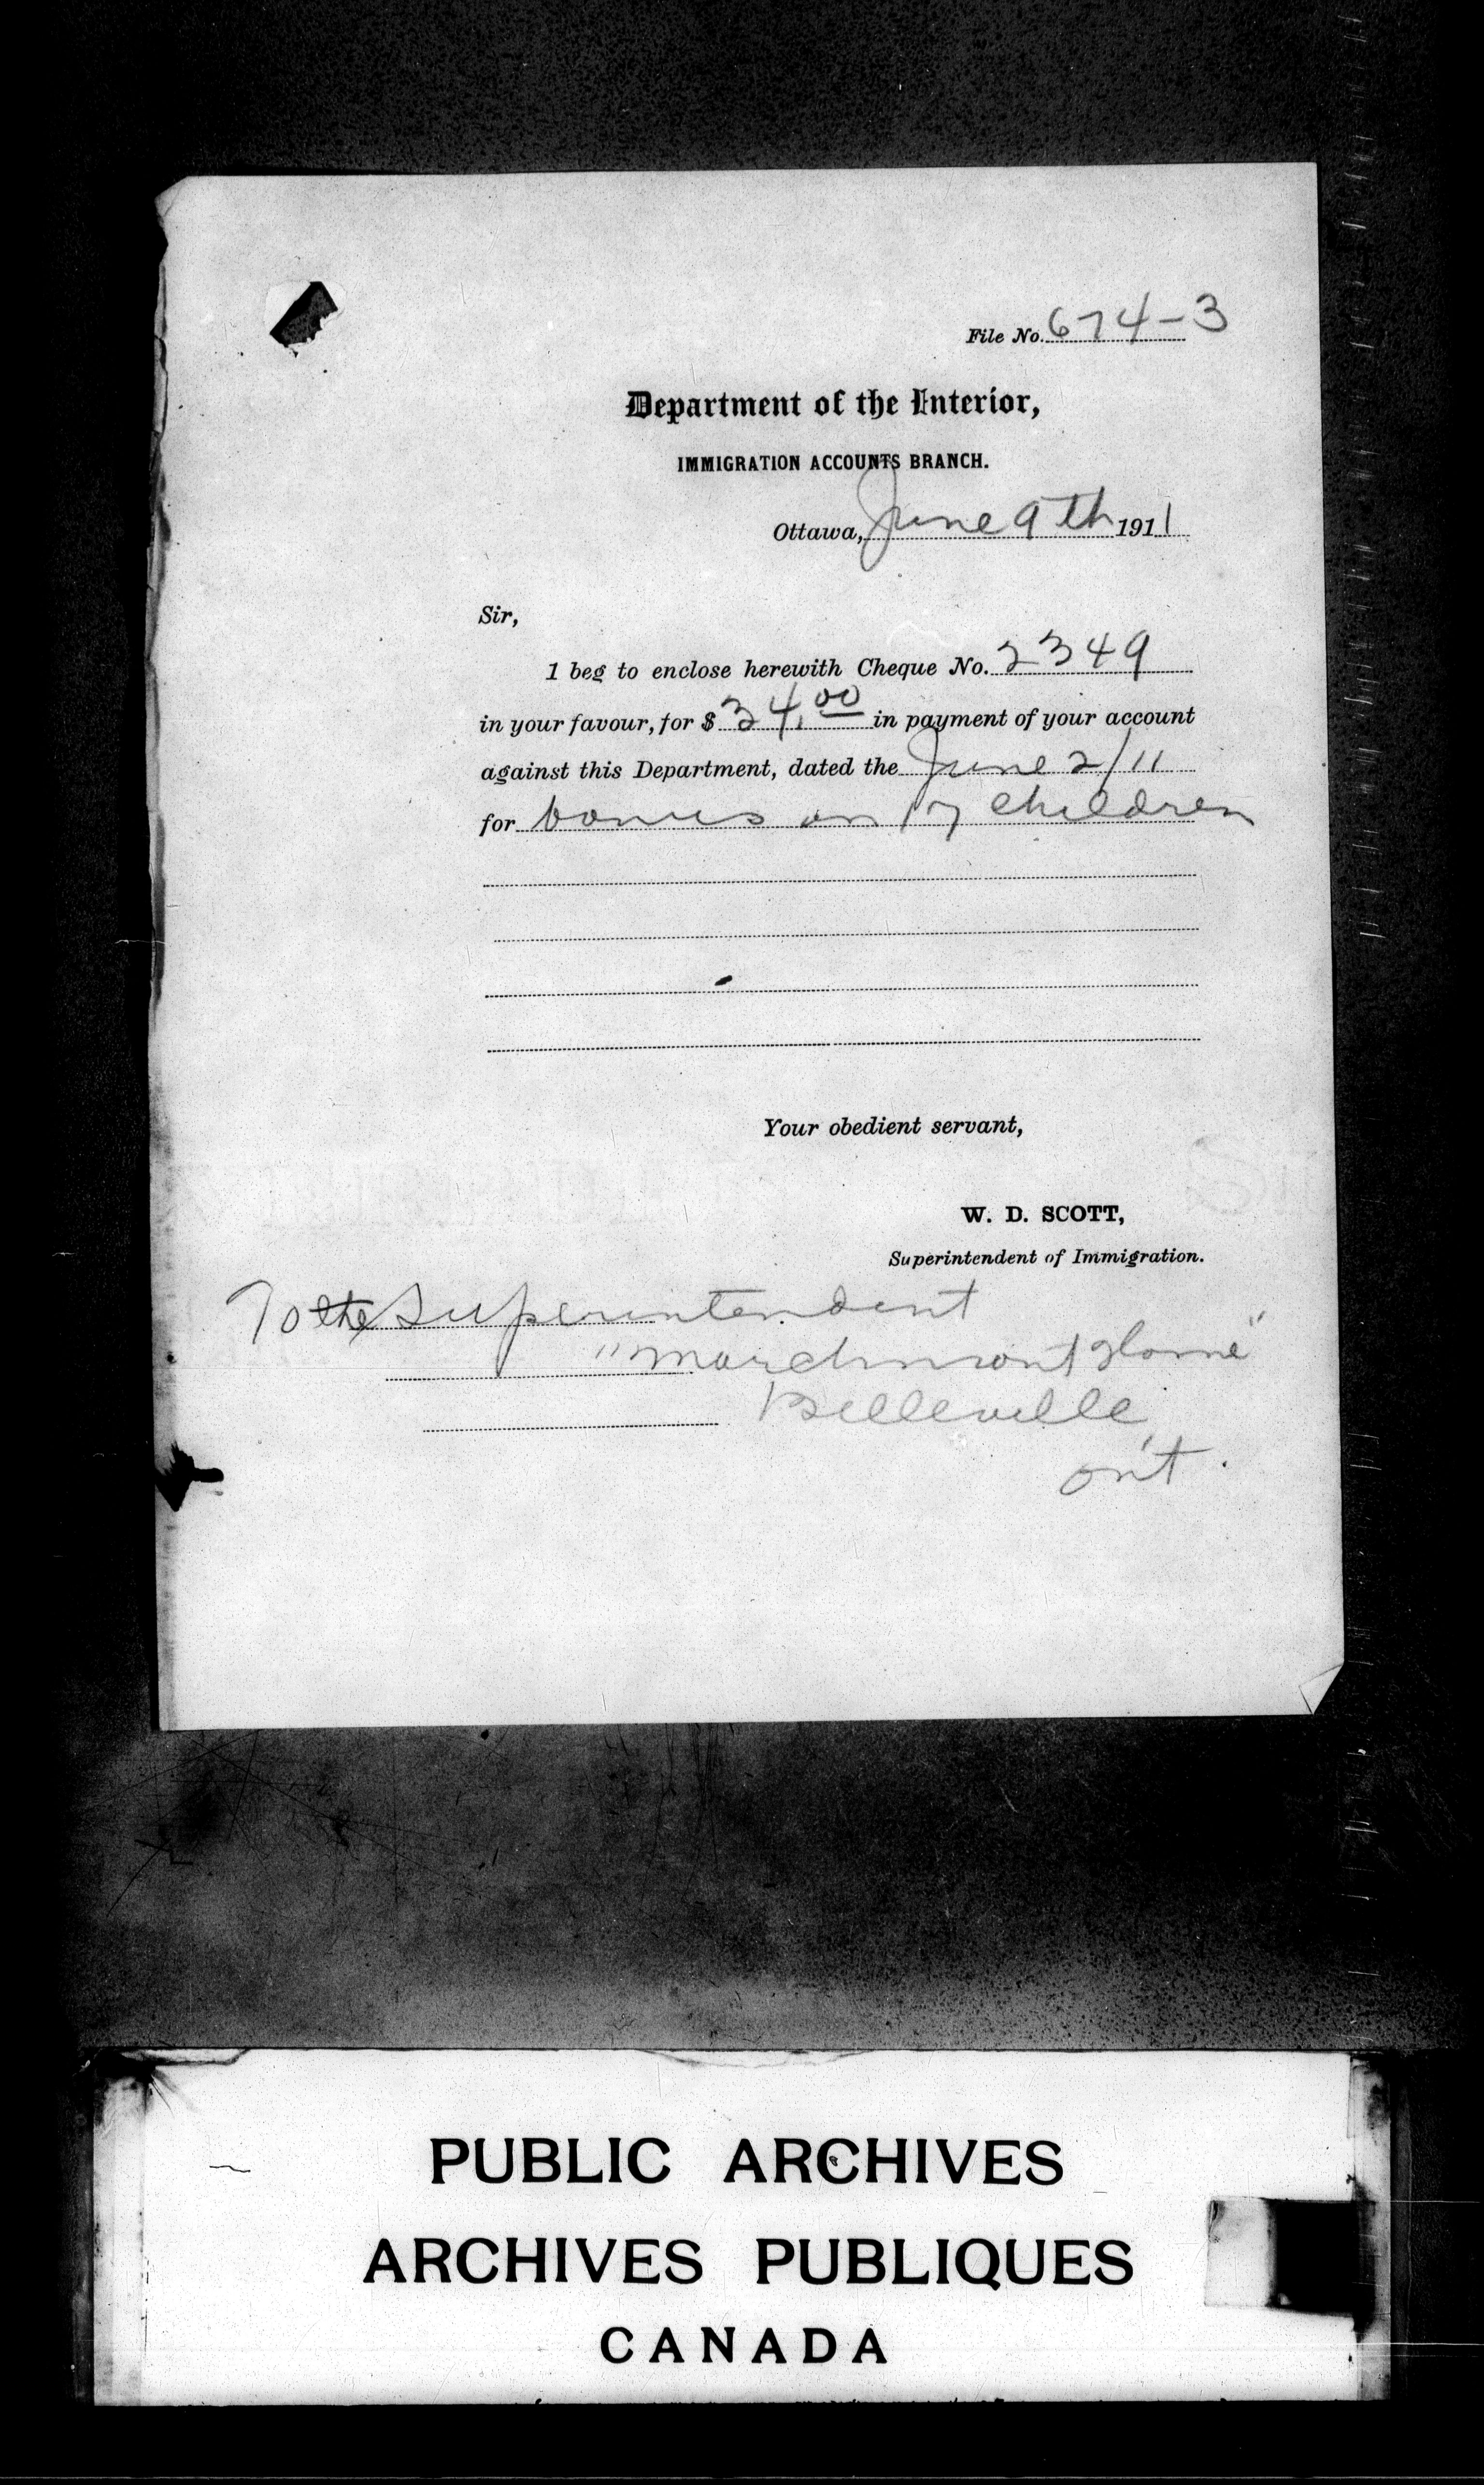 File No. 674-3
Department of the Interior,
IMMIGRATION ACCOUNTS BRANCH.
Ottawa, June 9th 1911
Sir,
I beg to enclose herewith Cheque No. 2349
in your favour, for $ 34.00 in payment of your account
against this Department, dated the June 2/11
for bonus on 17 children
Your obedient servant,
W. D. SCOTT,
Superintendent of Immigration.
To the Superintendent
"Marchmont Home"
Belleville,
Ont.
PUBLIC ARCHIVES
ARCHIVES PUBLIQUES
CANADA